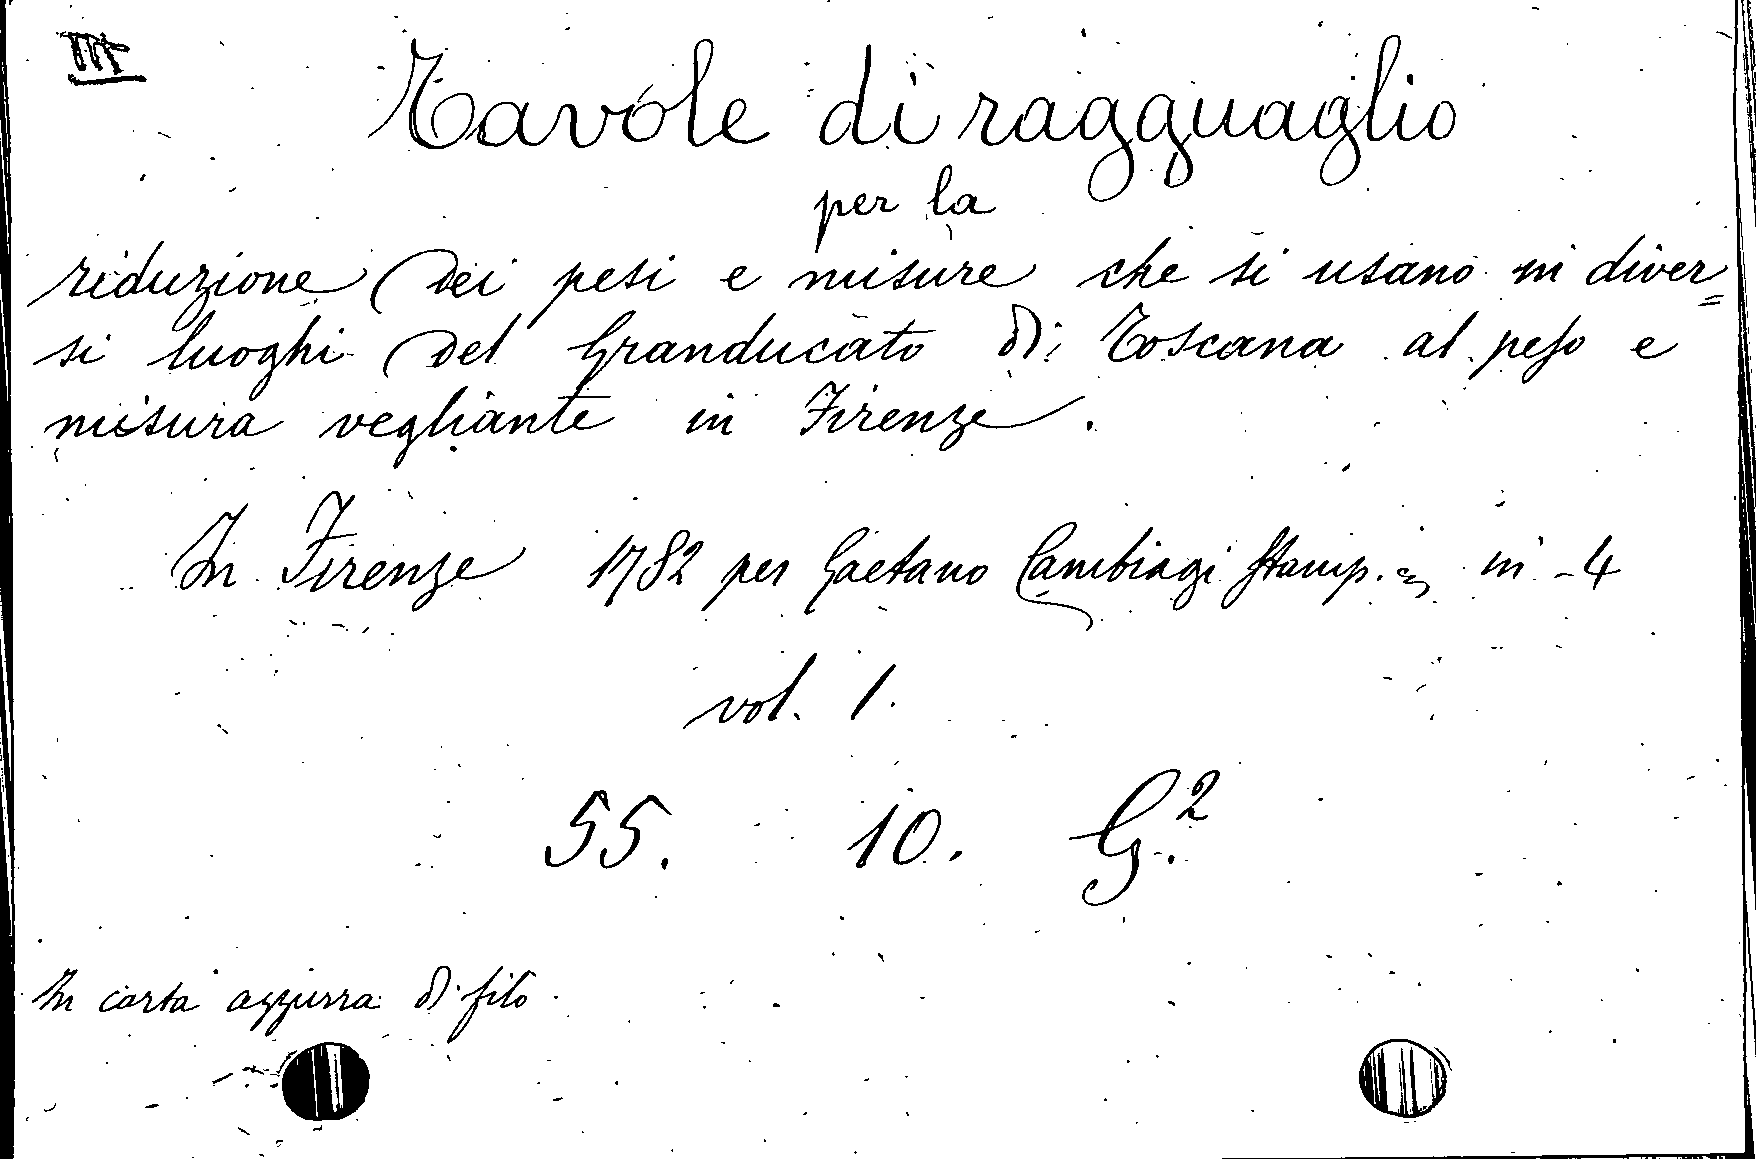 III
Tavole di ragguaglio
per la
riduzione dei pesi e misure che si usano in diver=
si luoghi del Granducato di Toscana al peso e
misura vegliante in Firenze.
In Firenze 1782 per Gaetano Cambiagi Stamp. in-4
vol. 1.
55. 10. G.²
In carta azzurra di filo